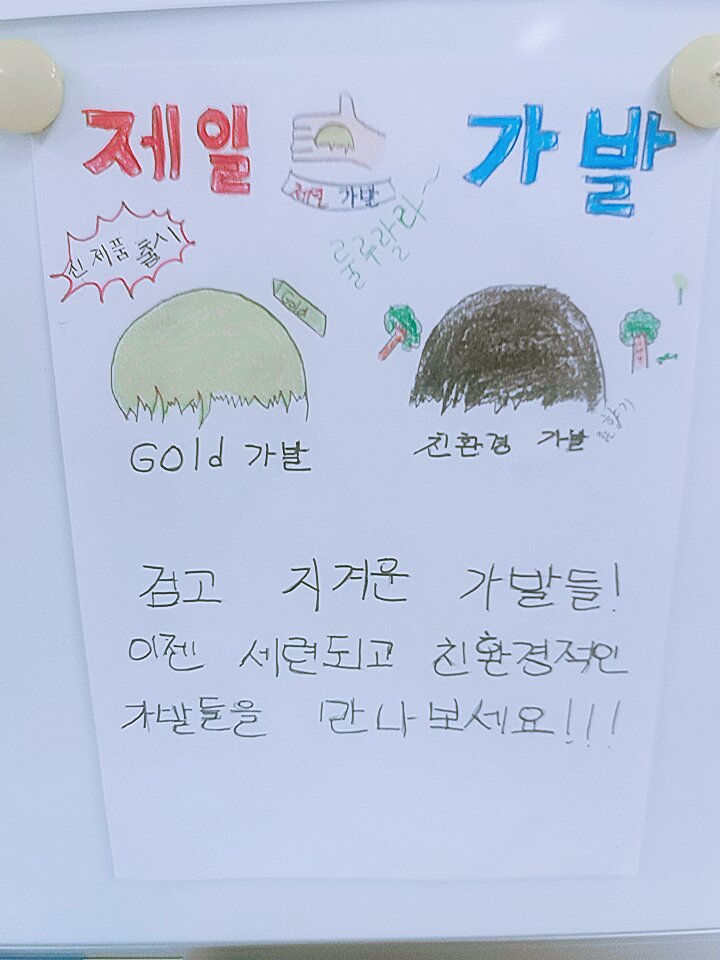 제일 가발
제일 가발
룰루랄라~
신제품 출시
Gold
Gold 가발
친환경 가발
향기
검고 지겨운 가발들!
이젠 세련되고 친환경적인
가발들을 만나보세요!!!